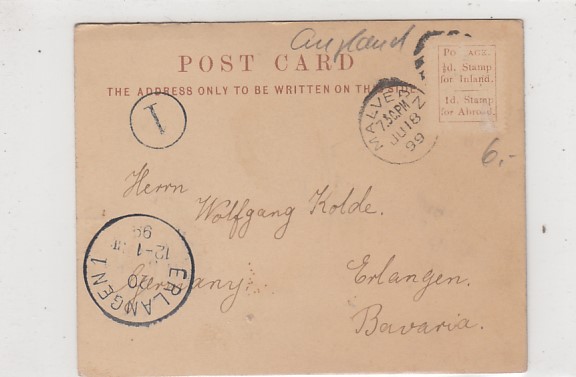 England
POST CARD
THE ADDRESS ONLY TO BE WRITTEN ON THIS SIDE
POSTAGE.
½d. Stamp
for Inland.
1d. Stamp
for Abroad.
MALVERN
7.30PM
JU 18
99
6.-
1
Herrn
Wolfgang Kolde.
Germany.
Erlangen.
Bavaria.
ERLANGEN 1
20
12-1
99